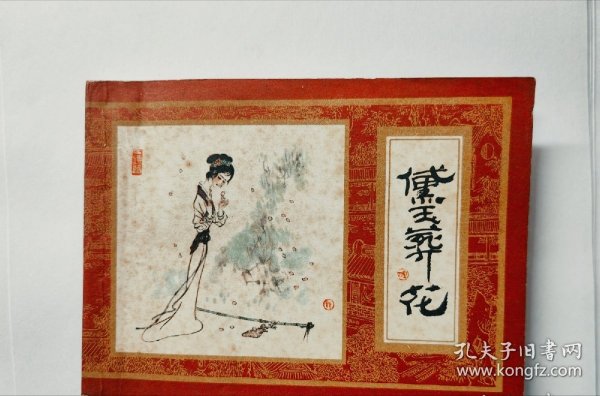 黛玉葬花
孔夫子旧書网
www.kongfz.com